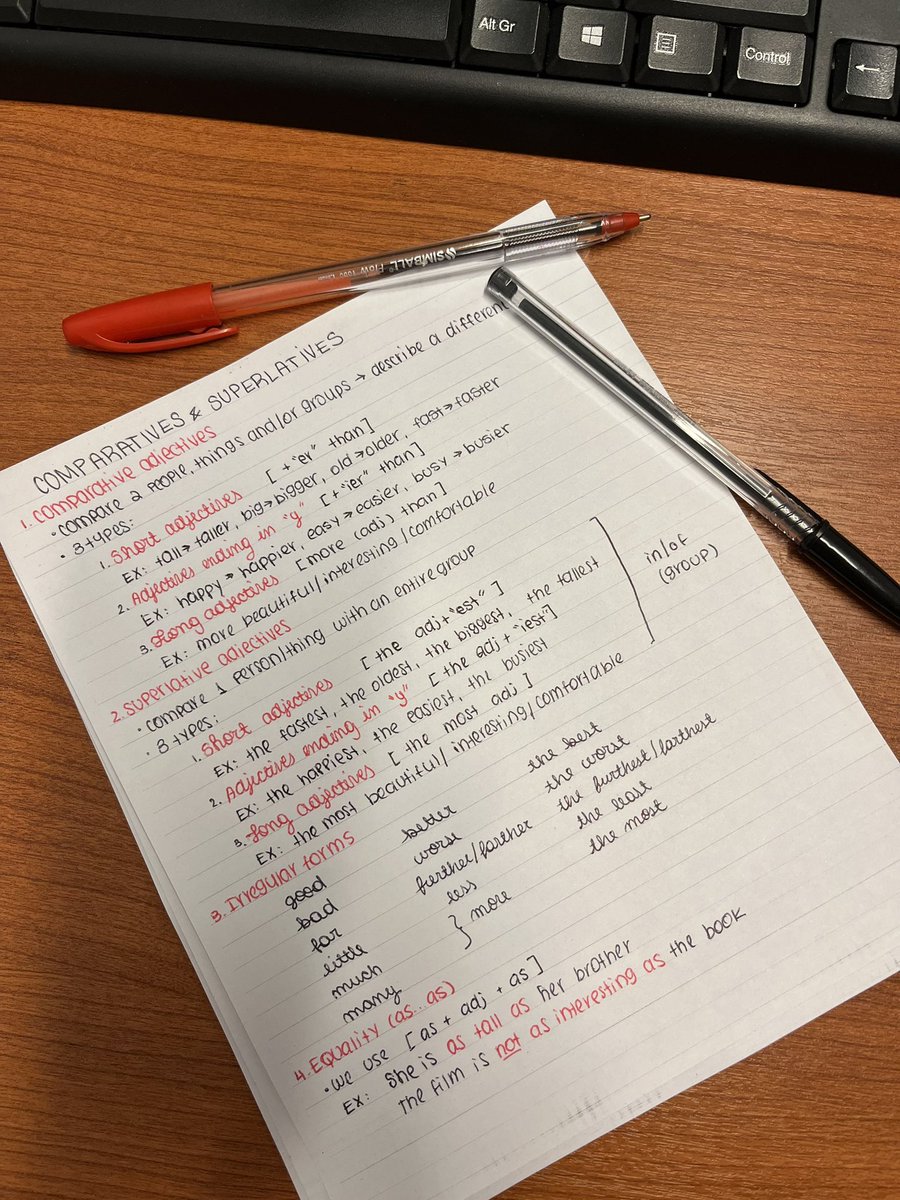 Alt Gr
Control
SIMBALL® Flow
COMPARATIVES & SUPERLATIVES
1. Comparative adjectives
• compare 2 people, things and/or groups → describe a different
• 3 types:
1. Short adjectives [ + "er" than]
EX: tall→taller, big→bigger, old→older, fast→faster
2. Adjectives ending in "y" [+ "ier" than]
EX: happy→happier, easy→easier, busy→busier
3. Long adjectives [more (adj) than]
EX: more beautiful/interesting/comfortable
2. Superlative adjectives
• compare 1 person/thing with an entire group
• 3 types:
1. Short adjectives [the adj+"est"]
EX: the fastest, the oldest, the biggest, the tallest
2. Adjectives ending in "y" [the adj+"iest"]
EX: the happiest, the easiest, the busiest
3. Long adjectives [the most adj]
EX: the most beautiful/interesting/comfortable
in/of
(group)
3. Irregular forms
good better the best
bad worse the worst
far further/farther the furthest/farthest
little less the least
much } more the most
many
4. Equality (as...as)
• we use [as + adj + as]
EX: She is as tall as her brother
the film is not as interesting as the book